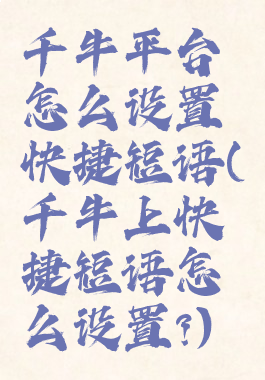 千牛平台
怎么设置
快捷短语(
千牛上快
捷短语怎
么设置?)